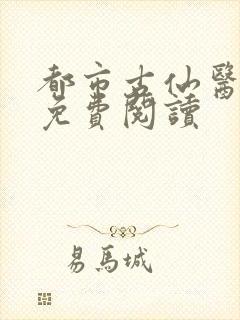 都市古仙醫
免費閱讀
易馬城